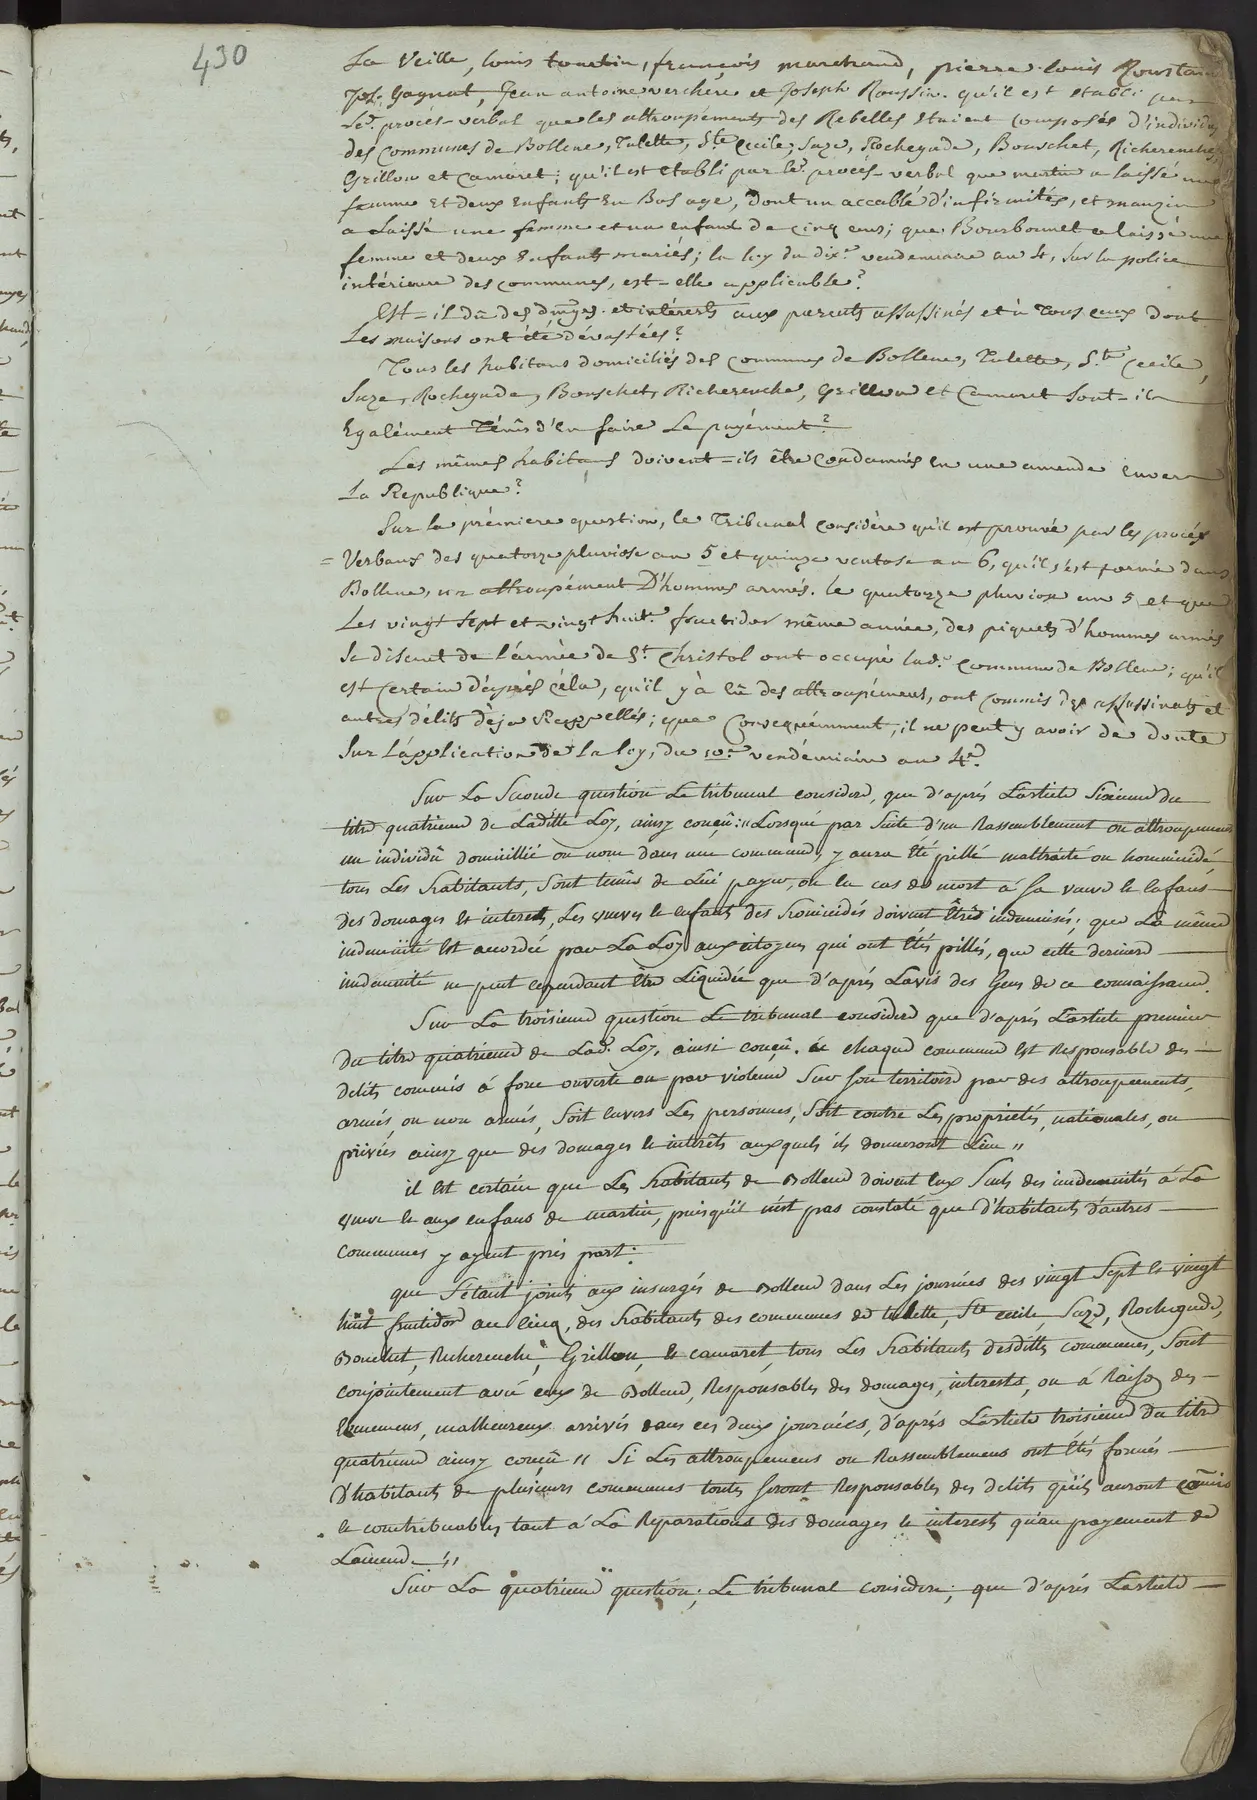 430
La Veille, louis tourtin, françois marchand, pierre louis Roustan
Jos. Gagnat, Jean antoine verchere et Joseph Roussin. qu'il est etabli par
Led. procès-verbal que les attroupéments des Rebelles étaient composés d'individus
des Communes de Bollene, Tulette, Ste Cecile, Suze, Rochegude, Bouschet, Richerenches,
Grillon et Camaret; qu'il est etabli par led. procès-verbal que martin a laissé une
femme et deux enfants en Bas age, dont un accablé d'infirmités, et mauzin
a Laissé une femme et un enfant de cinq ans; que Bourbonnet a laissé une
femme et deux Enfants mariés; la loy du dix.e vendemiaire an 4, sur la police
intérieure des communes, est-elle applicable?
Est-il dû des dmges et intérests aux parents assassinés et à Tous ceux dont
Les maisons ont été dévastées?
Tous les habitans domiciliés des Communes de Bollene, Tulette, Ste Cecile,
Suze, Rochegude, Bouschet, Richerenche, Grillon et Camaret sont-ils
Egalément Ténûs d'en faire Le payément?
Les mêmes habitans doivent-ils être Condamnés en une amende envers
La Republique?
Sur la prémiere question, le Tribunal considère qu'il est prouvé par les procès
= Verbaux des quatorze pluviose an 5 et quinze ventose an 6, qu'il s'est formé dans
Bollene, un attroupément D'hommes armés. le quatorze pluviose an 5 et que
Les vingt sept et vingt huit.e fructidor même année, des piquets d'hommes armés
se disant de l'armée de St. Christol ont occupé lad. Commune de Bollene; qu'il
est Certain d'après céla, qu'il y à eû des attroupémens, ont commis des assassinats et
autres délits déja Rappellés; que Conséquémment, il ne peut y avoir de doute
Sur L'application de la loy, du 10.e vendémiaire an 4.e
Sur La Seconde question Le tribunal considere, que d'aprés L'article Sixieme du
titre quatrieme de Laditte Loy, ainsy conçû: "Lorsque par Suite d'un Rassemblement ou attroupement
un individû domicillié ou non dans une commune, y aura Eté pillé maltraité ou homicidé
tous Les habitants, Sont tenûs de Lui payer, ou en cas de mort à Sa veuve et enfans
des domages et interest, Les veuves et enfants des homicidés doivent Être indemnisés; que La même
indemnité est accordée par La Loy aux citoyens qui ont Étés pillés, que cette derniere
indemnité ne peut cependant Être Liquidée que d'aprés L'avis des Gens de ce connaissant.
Sur La troisieme question Le tribunal considere que d'aprés L'article premier
Du titre quatrieme de Lad. Loy, ainsi conçû. " chaque commune est Responsable des
delits commis à force ouverte ou par violence Sur Son territoire par des attroupements,
armés, ou non armés, Soit envers Les personnes, Soit contre Les proprietés, nationales, ou
privées ainsy que des domages et interêts auxquels ils donneront Lieu "
il Est certain que Les habitants de Bollene doivent Eux Seuls des indemnités à La
veuve et aux enfans de martin, puisqu'il n'est pas constaté que d'habitants d'autres
communes y ayent pris part.
que S'étant joints aux insurgés de Bollene dans Les journées des vingt Sept et vingt
huit fructidor an cinq, des habitants des communes de tulette, Ste cecile, Suze, Rochegude,
Bouchet, Richerenche, Grillon, et camaret, tous Les habitants desdittes communes, Sont
conjointement avec ceux de Bollene, Responsables des domages, interests, ou à Raison des
Evenemens, malheureux arrivés dans ces deux journées, d'aprés L'article troisieme du titre
quatrieme ainsy conçû " Si Les attroupemens ou Rassemblemens ont Étés formés
D'habitants de plusieurs communes toutes Seront Responsables des delits qu'ils auront comis
et contribuables tant à La Reparations des domages et interests qu'au payement de
L'amende "
Sur La quatrieme question, Le tribunal considere, que d'aprés L'article